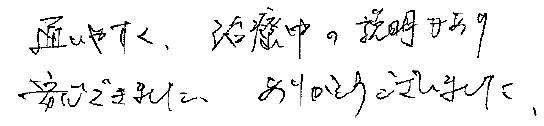 通いやすく、治療中の説明があり
安心できました。ありがとうございました、